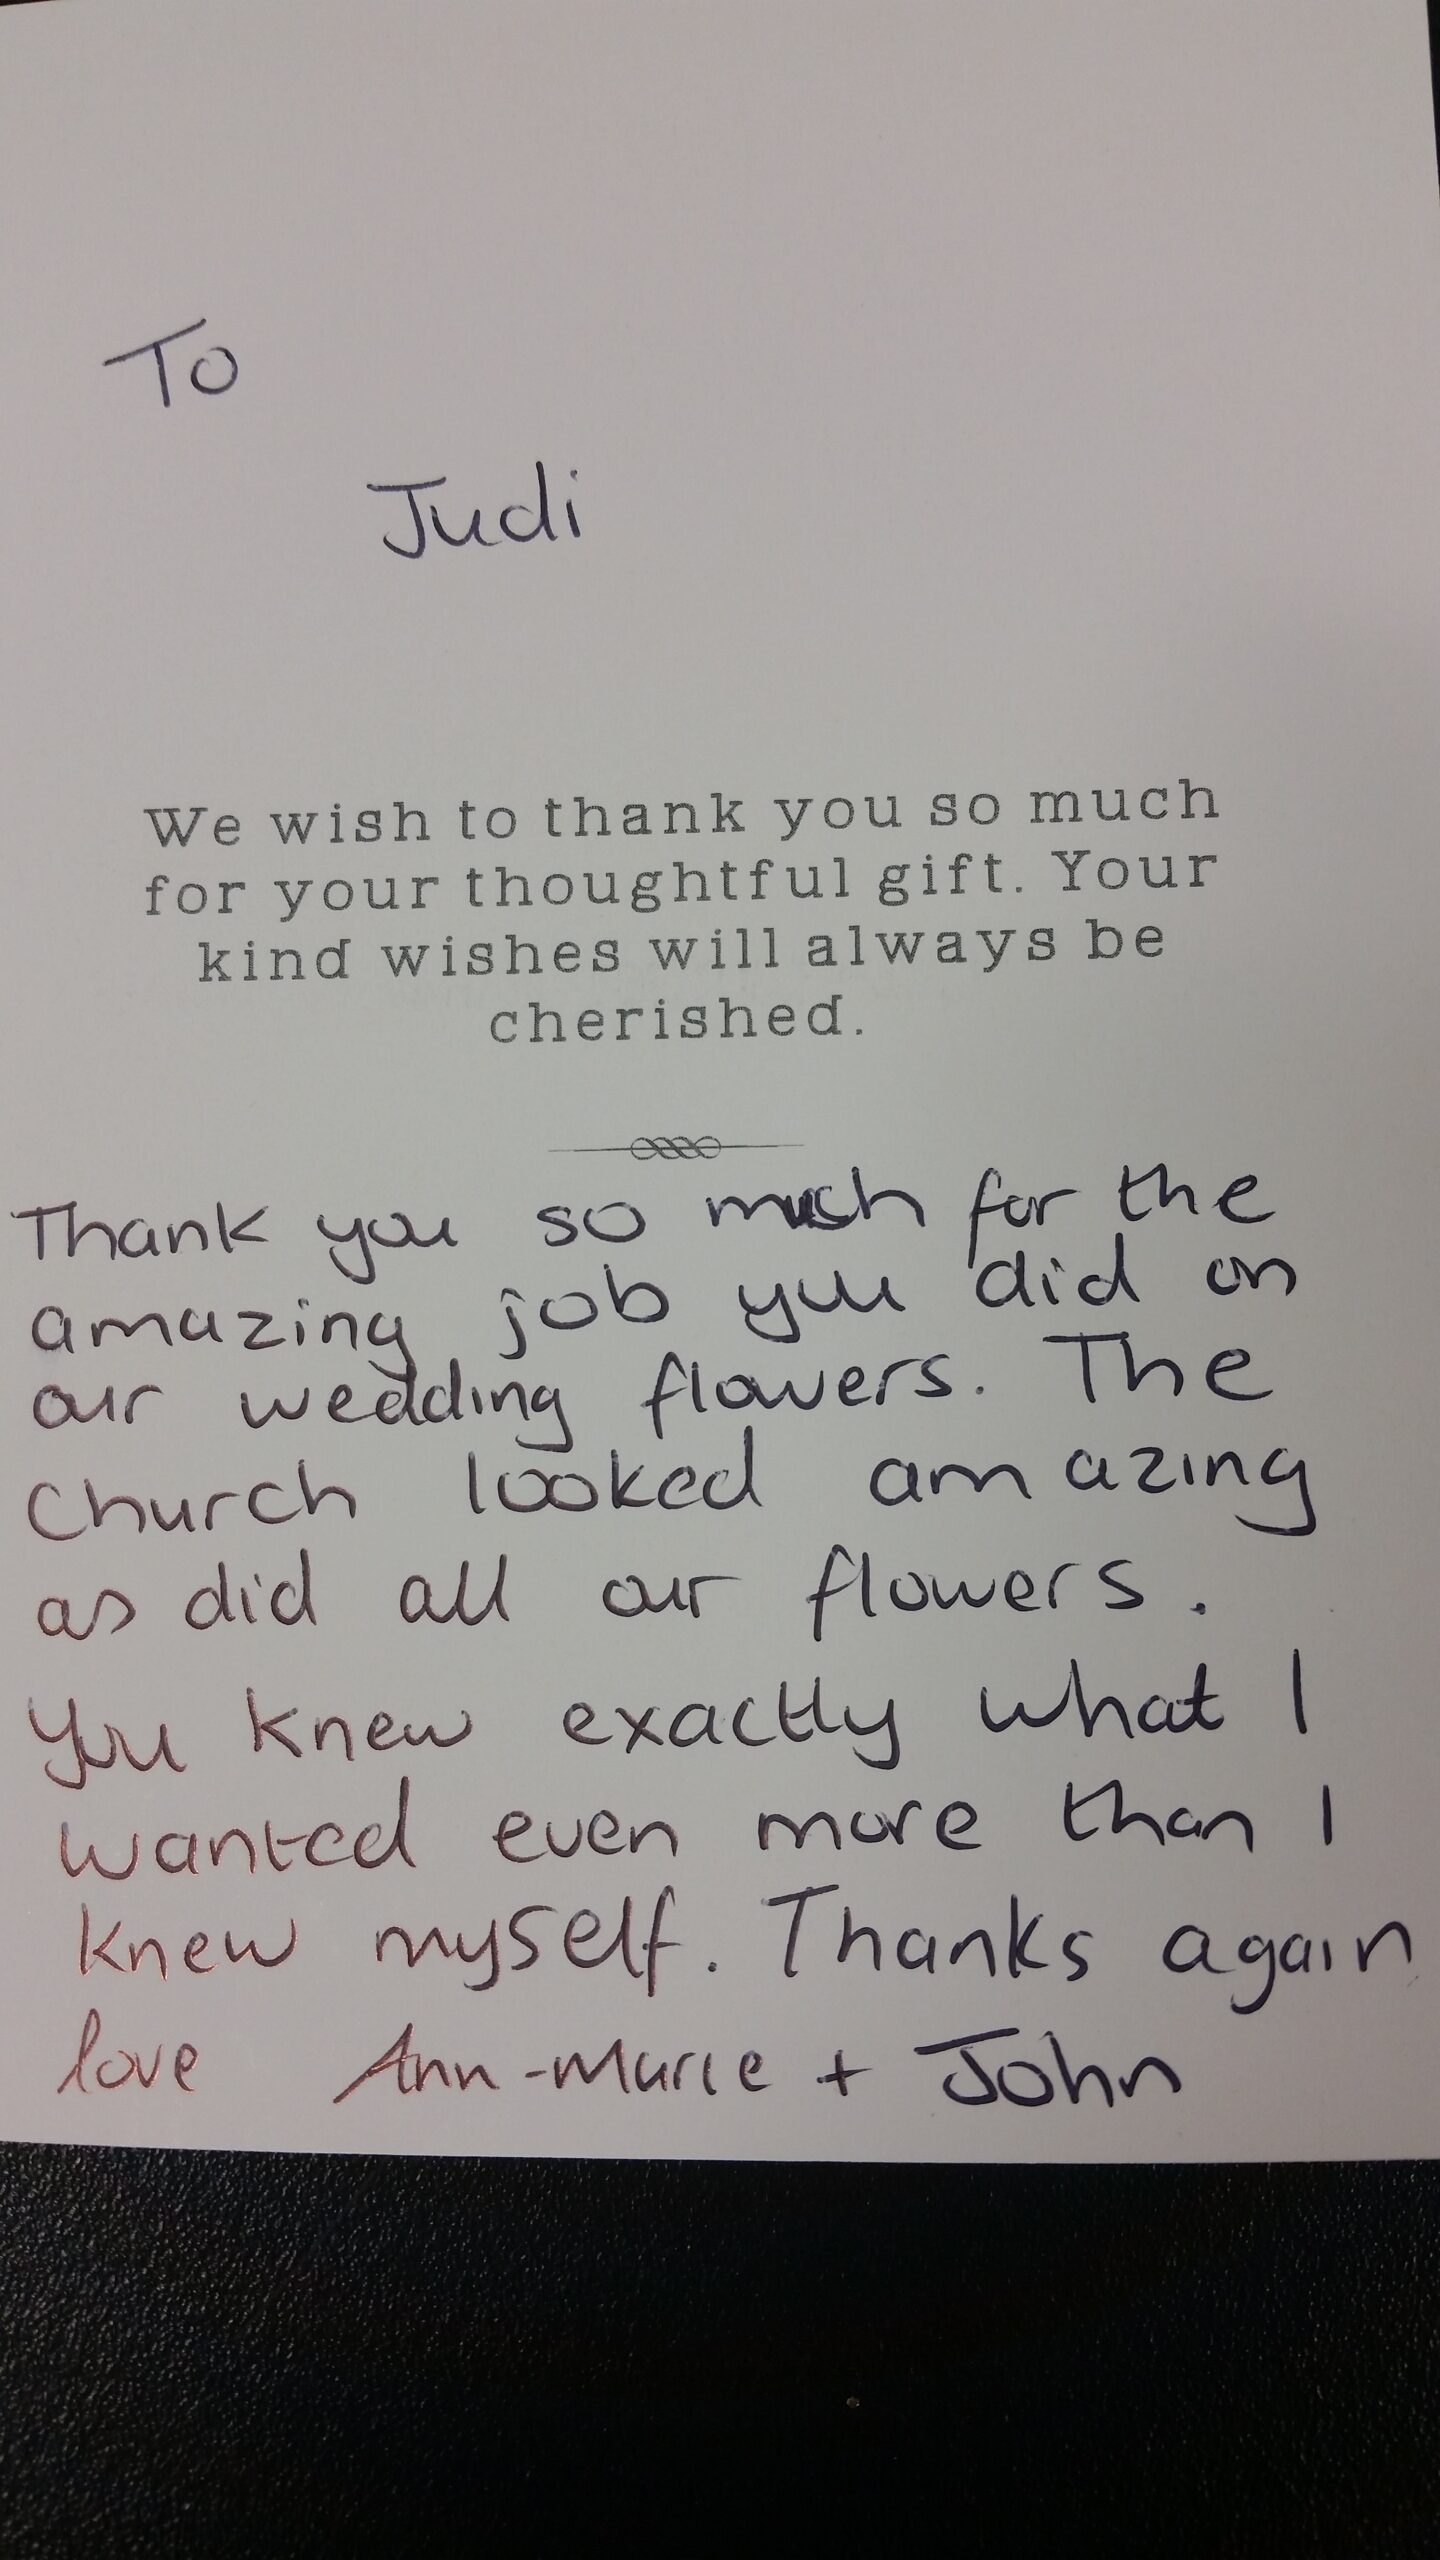 To
Judi
We wish to thank you so much
for your thoughtful gift. Your
kind wishes will always be
cherished.
Thank you so much for the
amazing job you did on
our wedding flowers. The
Church looked amazing
as did all our flowers.
You knew exactly what I
wanted even more than I
knew myself. Thanks again
love Ann-Marie + John